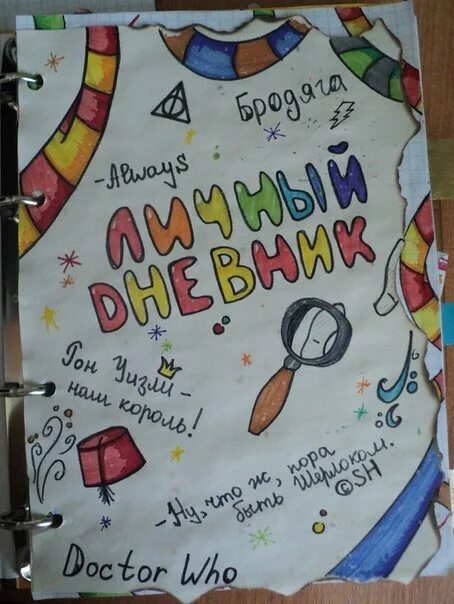 Бродяга
-Always
ЛИЧНЫЙ
DНЕВНИК
Рон Уизли -
наш король!
-Ну, что ж, пора
быть Шерлоком.
©SH
Doctor Who